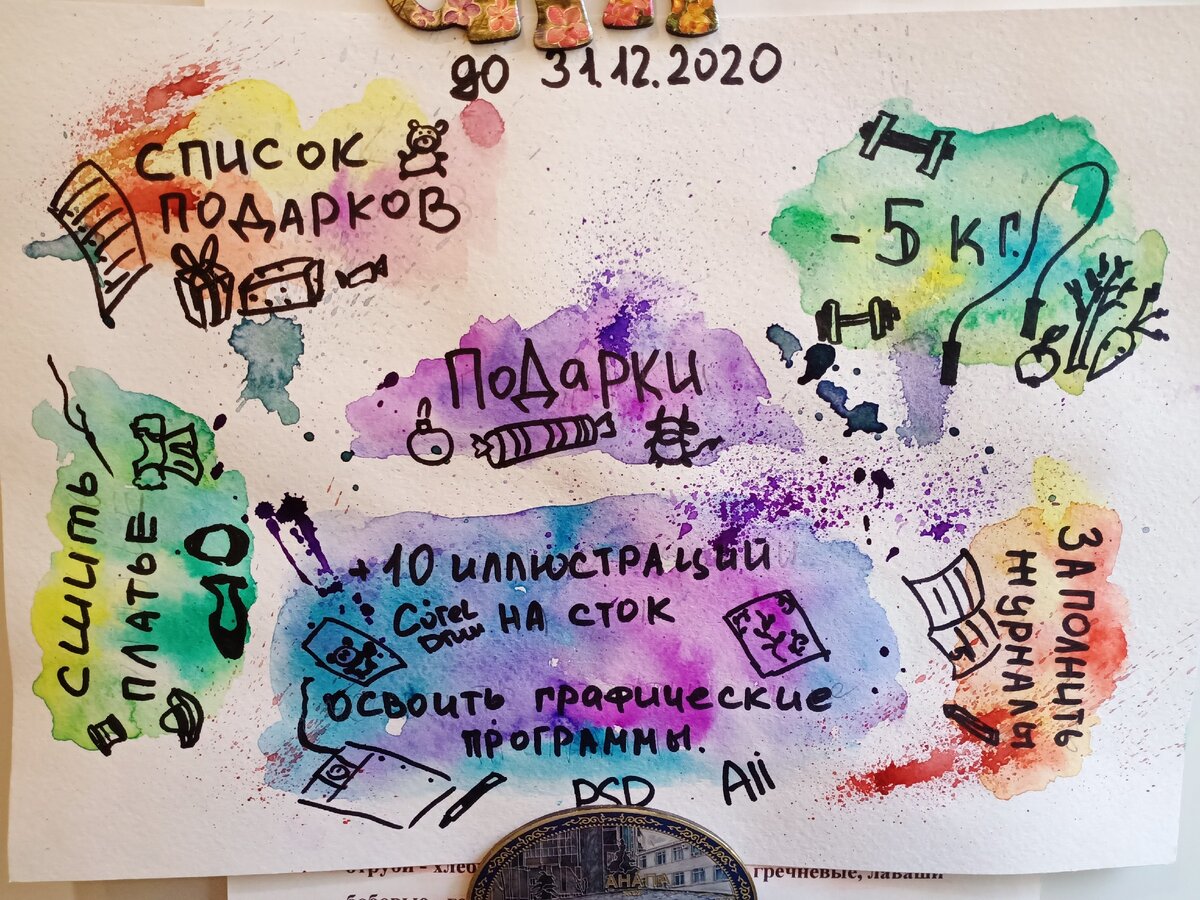 до 31.12.2020
СПИСОК
ПОДАРКОВ
- 5 кг.
ПОДАРКИ
СШИТЬ
ПЛАТЬЕ
+ 10 ИЛЛЮСТРАЦИЙ
Corel НА СТОК
Draw
ОСВОИТЬ ГРАФИЧЕСКИЕ
ПРОГРАММЫ.
PSD Aii
ЗАПОЛНИТЬ
ЖУРНАЛЫ
АНАПА
отруби - хлеб
гречневые, лаваши